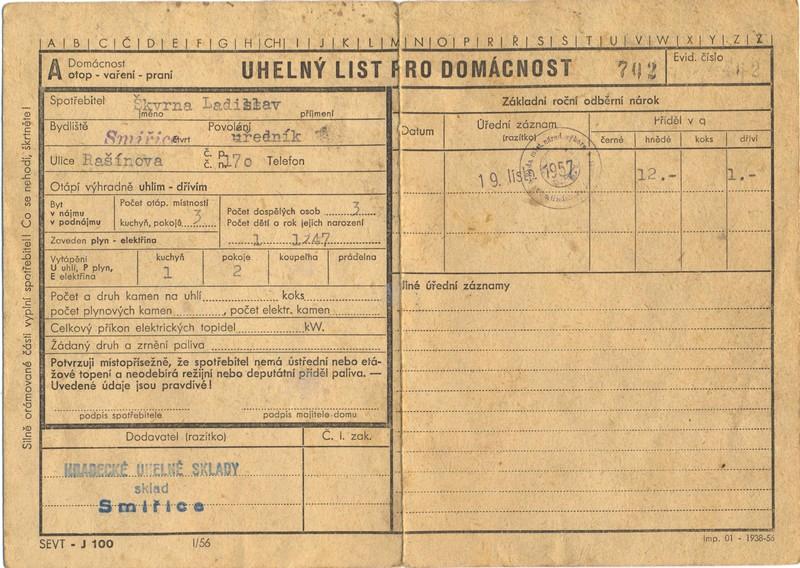 A B C Č D E F G H CH I J K L M N O P R Ř S Š T U V W X Y Z Ž
A Domácnost
otop - vaření - praní
UHELNÝ LIST PRO DOMÁCNOST
702
Evid. číslo
Silně orámované části vyplní spotřebitel! Co se nehodí, škrtněte!
Spotřebitel Škvrna Ladislav
jméno příjmení
Bydliště Smiřice čtvrt Povolání úředník
Ulice Rašínova č. p. č. n. 170 Telefon
Otápí výhradně uhlím - dřívím
Byt
v nájmu
v podnájmu
Počet otáp. místností
kuchyň, pokojů 3
Počet dospělých osob 3
Počet dětí a rok jejich narození
Zaveden plyn - elektřina 1 1247
Vytápění
U uhlí, P plyn,
E elektřina
kuchyň pokoje koupelňa prádelna
1 2
Počet a druh kamen na uhlí koks
počet plynových kamen, počet elektr. kamen
Celkový příkon elektrických topidel kW.
Žádaný druh a zrnění paliva
Potvrzuji místopřísežně, že spotřebitel nemá ústřední nebo etá-
žové topení a neodebírá režijní nebo deputátní příděl paliva. —
Uvedené údaje jsou pravdivé!
podpis spotřebitele podpis majitele domu
Dodavatel (razítko) Č. l. zak.
HRADECKÉ UHELNÉ SKLADY
sklad
Smiřice
SEVT - J 100 I/56
Základní roční odběrní nárok
Datum
Úřední záznam
(razítko)
Příděl v q
černé hnědé koks dříví
19. list. 1957
12.- 1.-
Jiné úřední záznamy
Imp. 01 - 1938-56